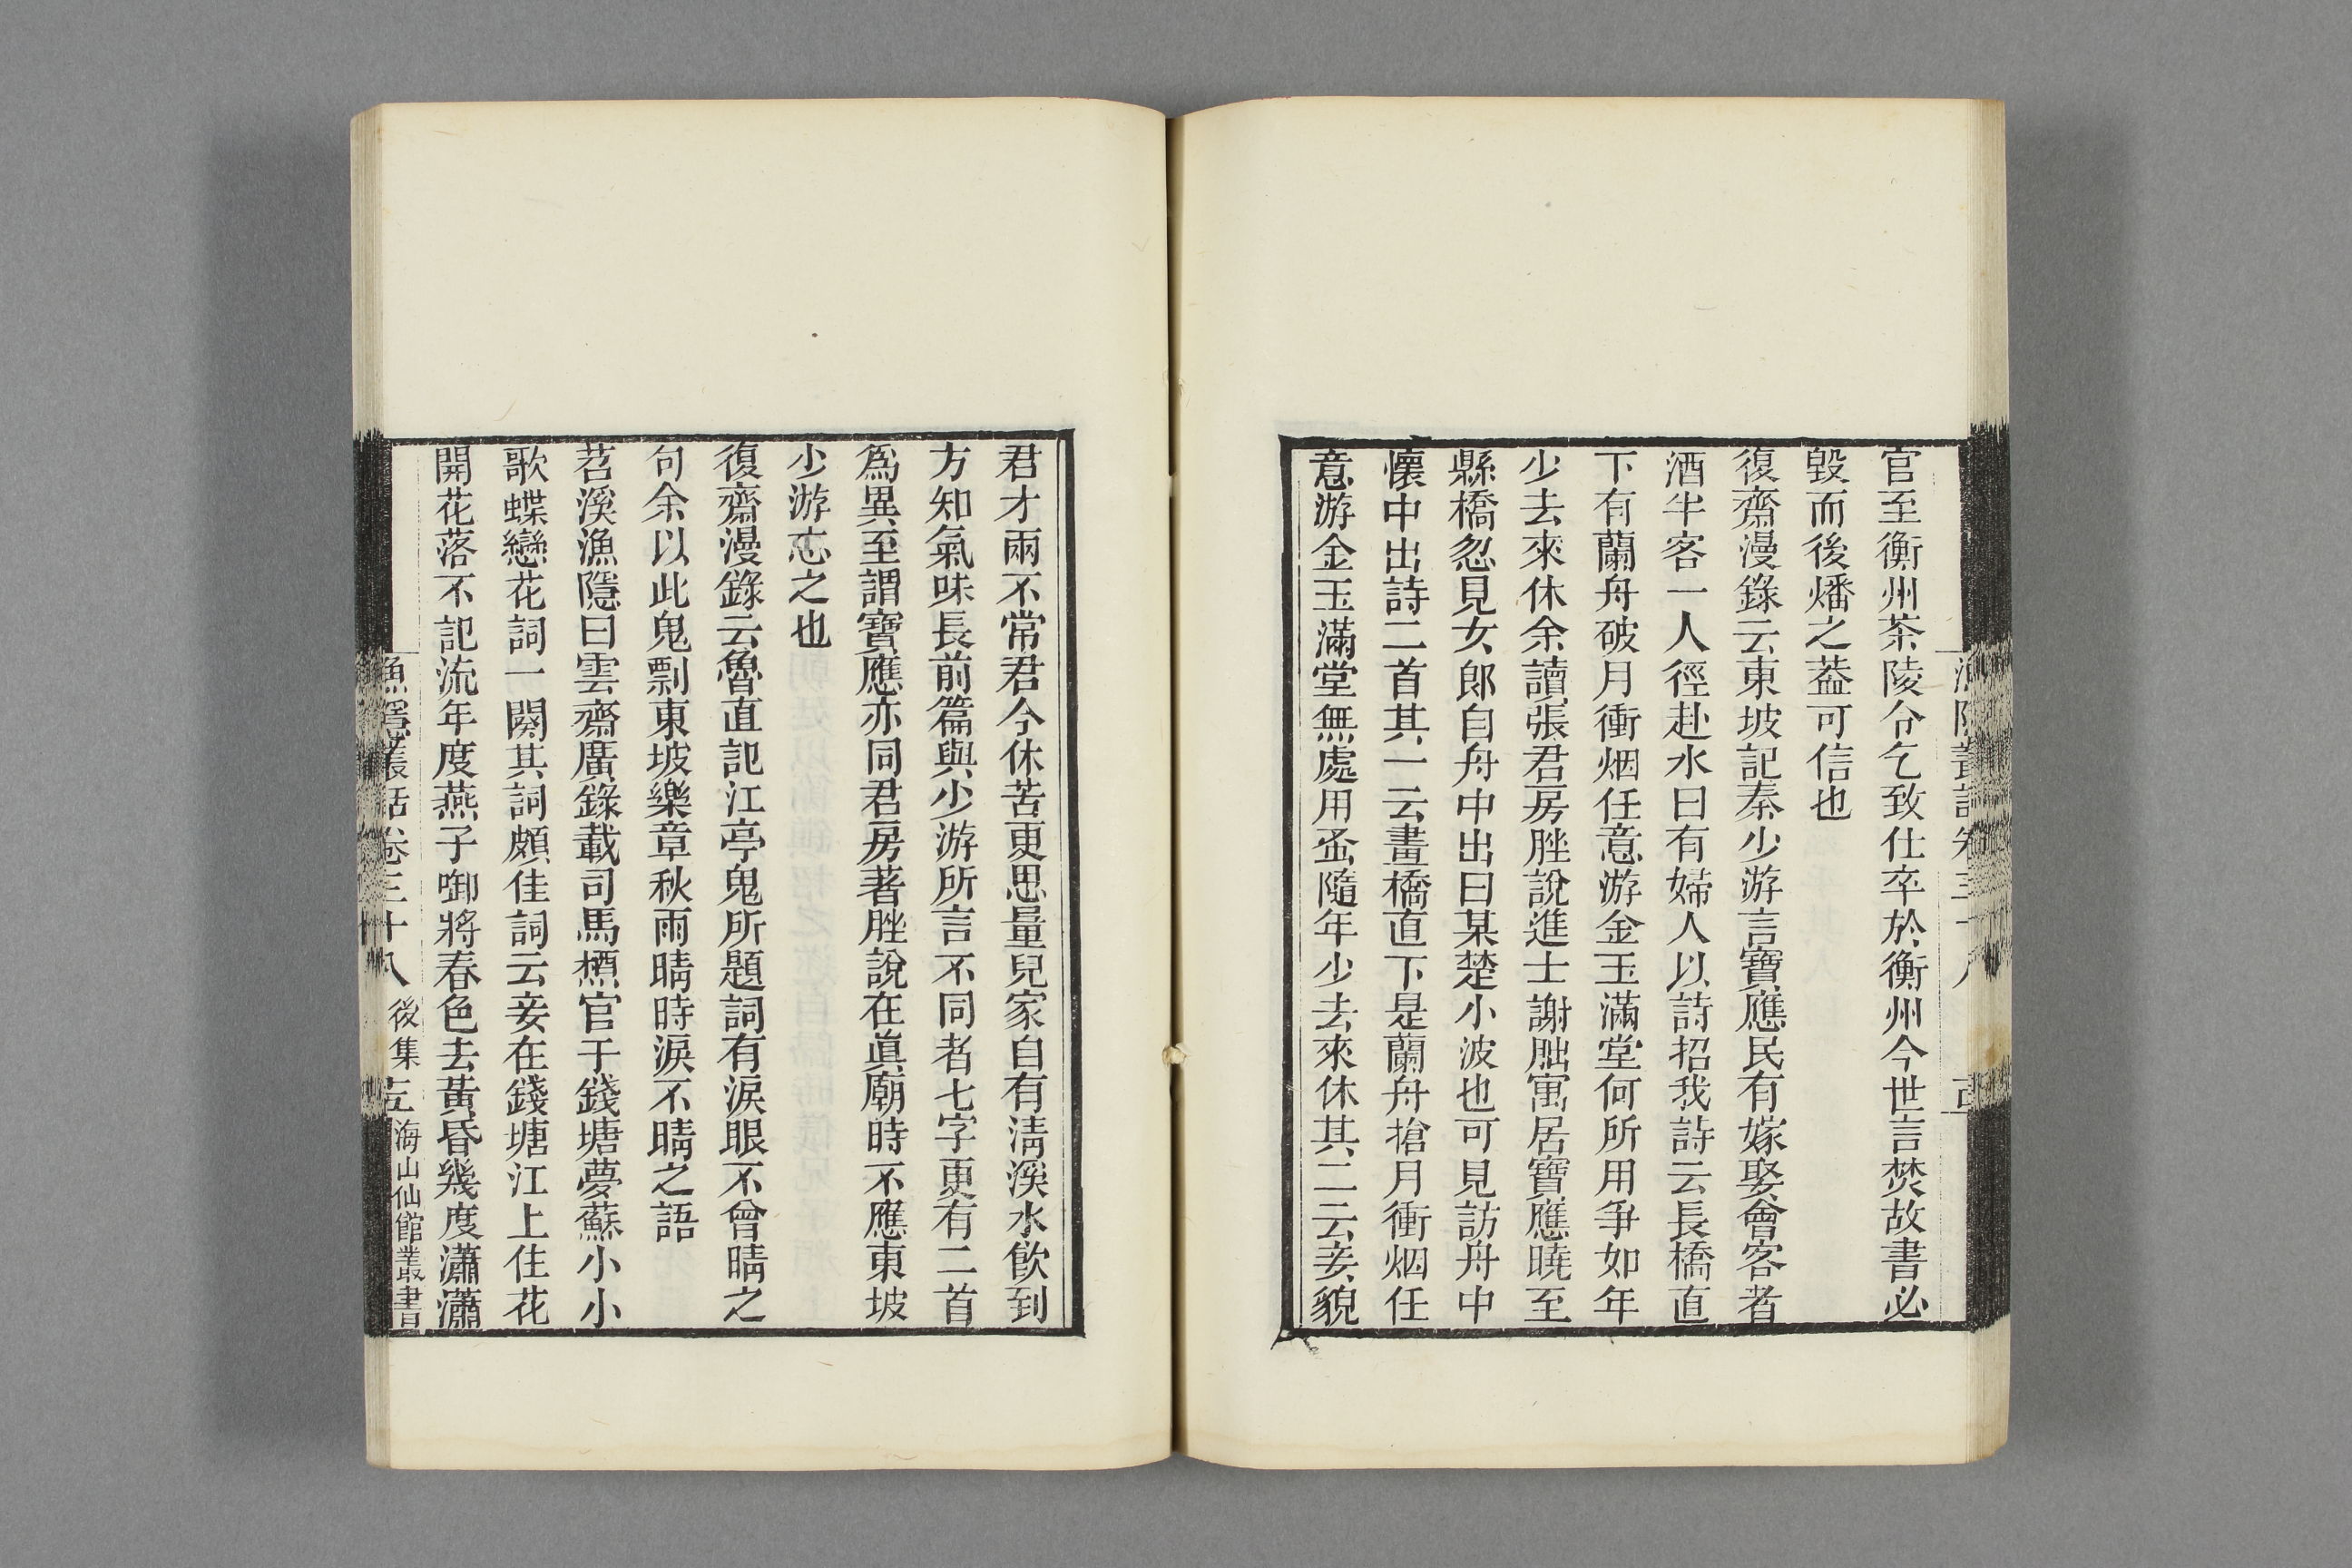 官至衡州茶陵令乞致仕卒於衡州今世言焚故書必
毀而後燔之葢可信也
復齋漫錄云東坡記秦少游言寶應民有嫁娶會客者
酒半客一人徑赴水曰有婦人以詩招我詩云長橋直
下有蘭舟破月衝烟任意游金玉滿堂何所用爭如年
少去來休余讀張君房脞說進士謝朏寓居寶應曉至
縣橋忽見女郎自舟中出曰某楚小波也可見訪舟中
懷中出詩二首其一云畫橋直下是蘭舟搶月衝烟任
意游金玉滿堂無處用孟隨年少去來休其二云妾貌
君才兩不常君今休苦更思量兒家自有淸溪水飮到
方知氣味長前篇與少游所言不同者七字更有二首
爲異至謂寶應亦同君房著脞說在眞廟時不應東坡
少游忘之也
復齋漫錄云魯直記江亭鬼所題詞有淚眼不曾晴之
句余以此鬼剽東坡樂章秋雨晴時淚不晴之語
苕溪漁隱曰雲齋廣錄載司馬槱官于錢塘夢蘇小小
歌蝶戀花詞一闋其詞頗佳詞云妾在錢塘江上住花
開花落不記流年度燕子啣將春色去黃昏幾度瀟瀟
漁隱叢話卷三十八 後集 海山仙館叢書